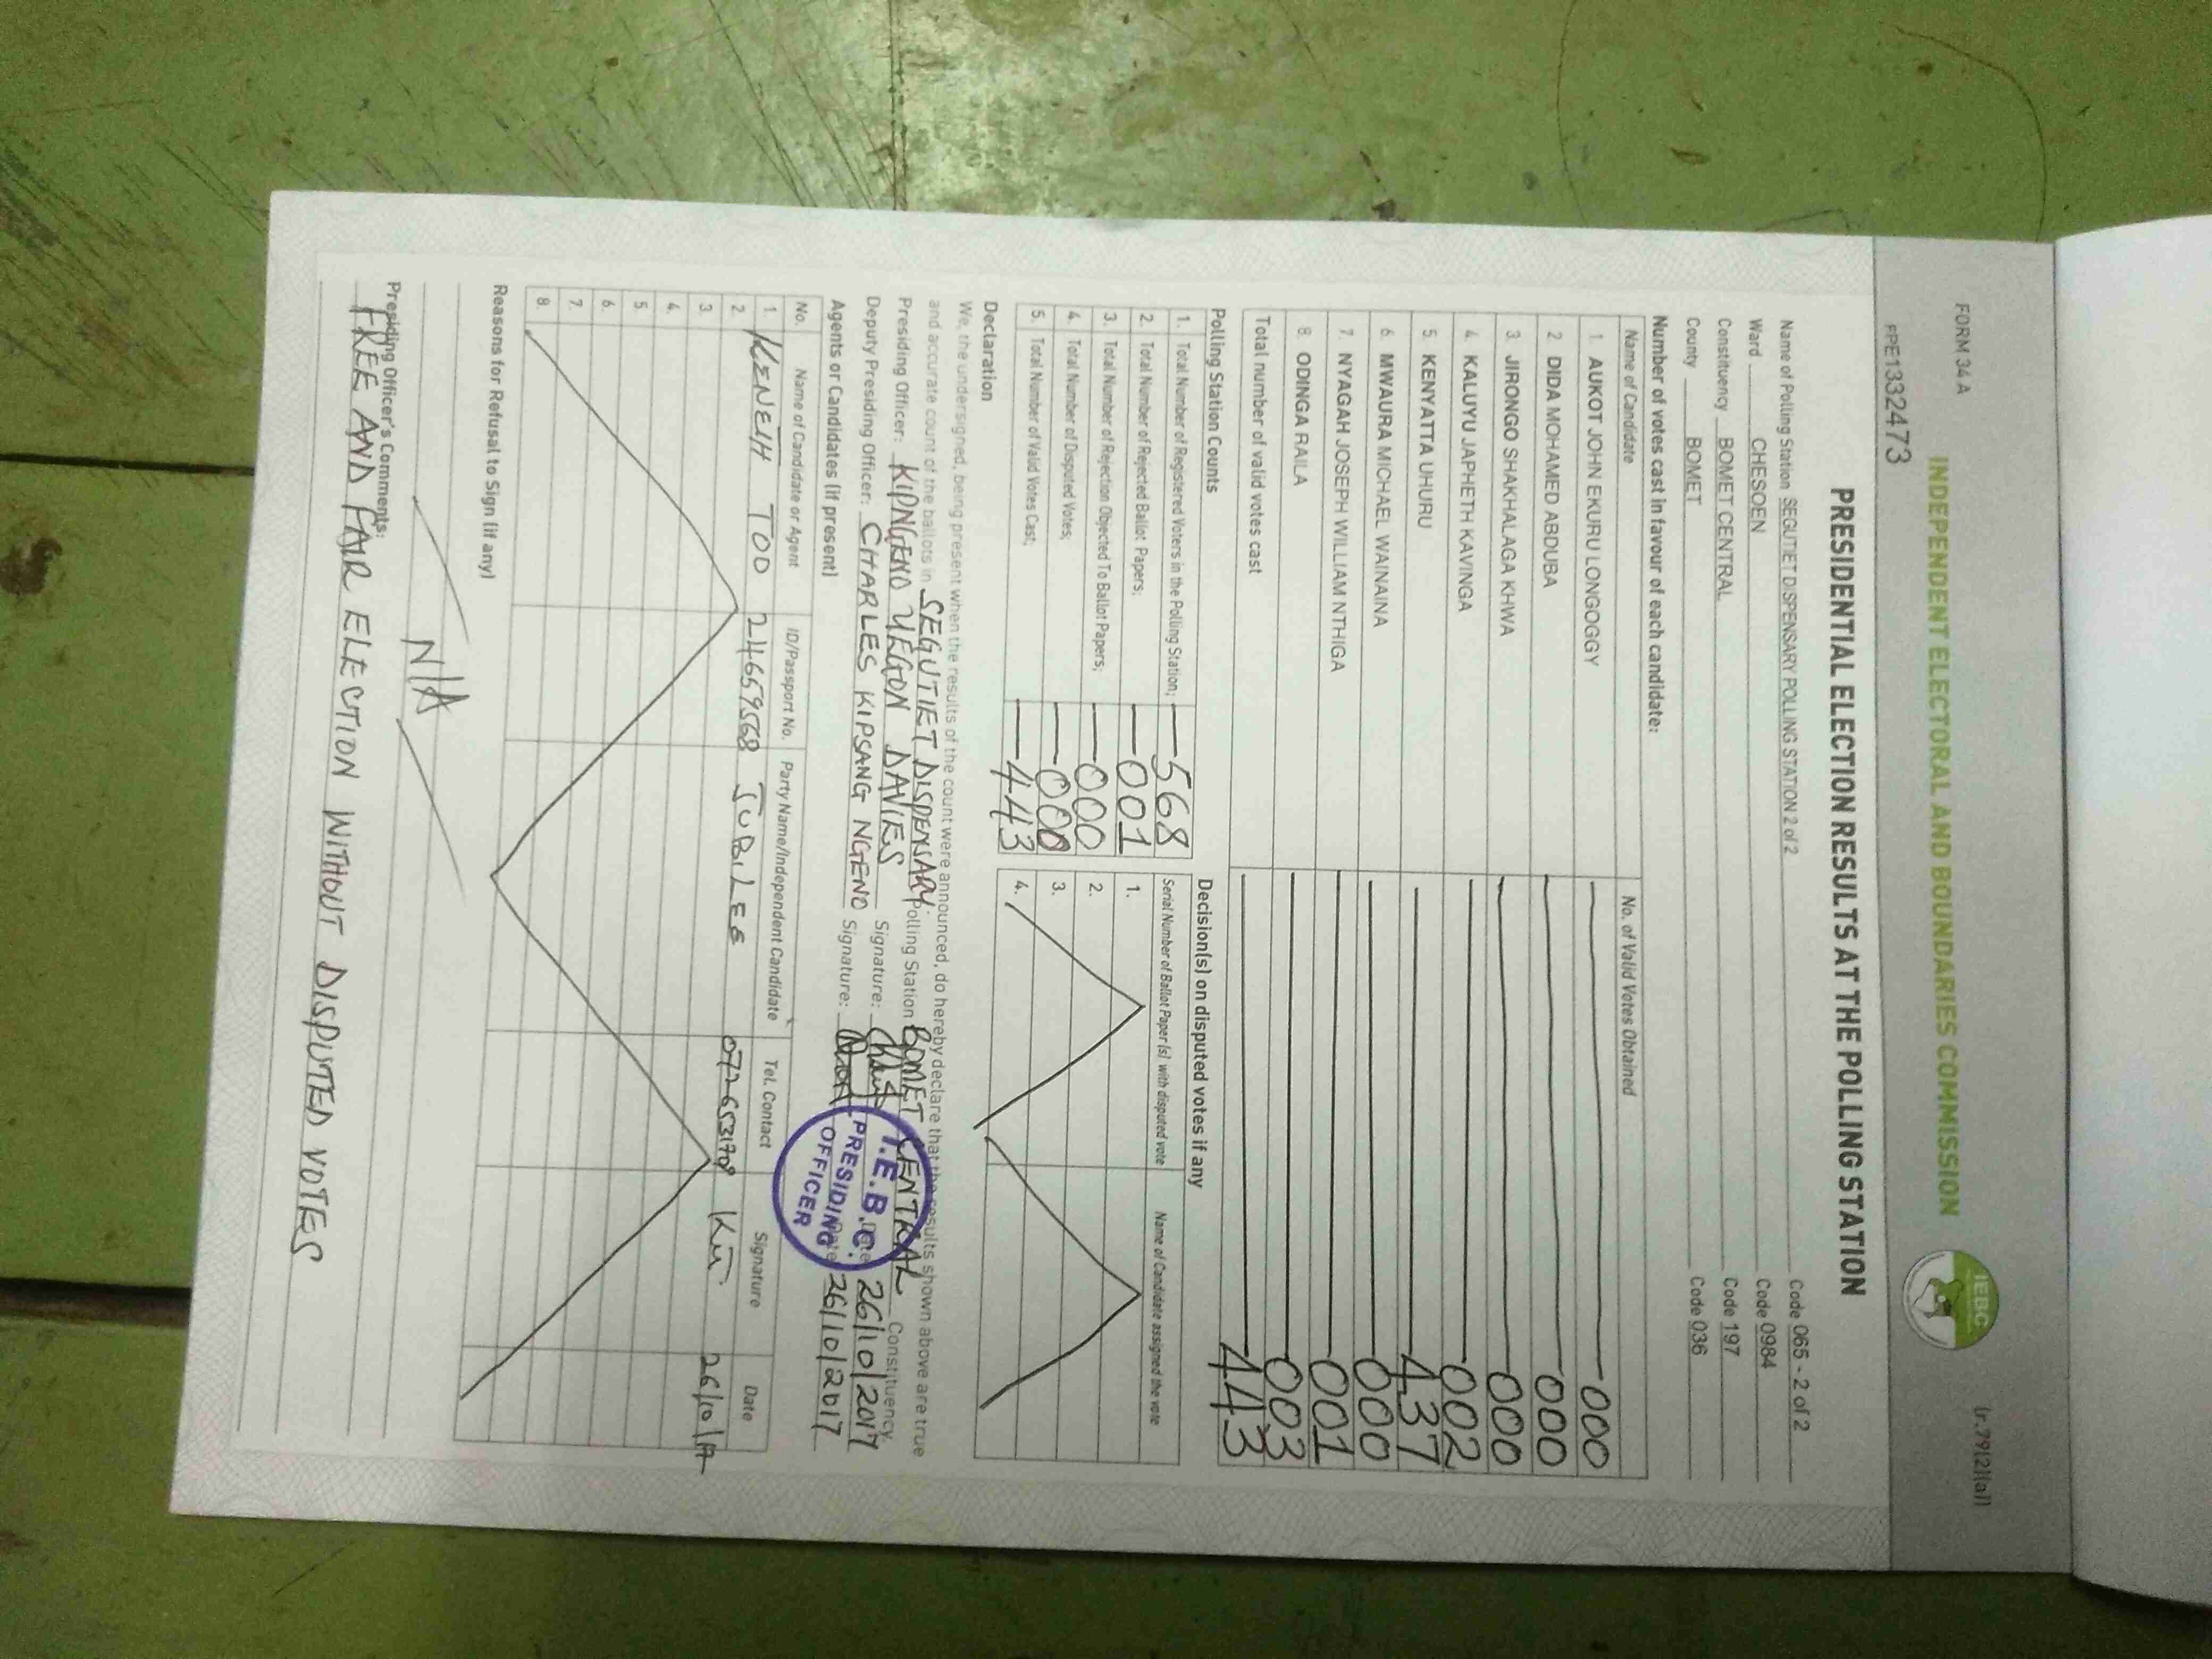 FORM 34 A
(r.79(2)(a))
INDEPENDENT ELECTORAL AND BOUNDARIES COMMISSION
IEBC
PPE1332473
PRESIDENTIAL ELECTION RESULTS AT THE POLLING STATION
Name of Polling Station SEGUTIET DISPENSARY POLLING STATION 2 of 2 Code 065 - 2 of 2
Ward CHESOEN Code 0984
Constituency BOMET CENTRAL Code 197
County BOMET Code 036
Number of votes cast in favour of each candidate:
Name of Candidate No. of Valid Votes Obtained
1. AUKOT JOHN EKURU LONGOGGY 000
2 DIDA MOHAMED ABDUBA 000
3. JIRONGO SHAKHALAGA KHWA 000
4. KALUYU JAPHETH KAVINGA 002
5. KENYATTA UHURU 437
6. MWAURA MICHAEL WAINAINA 000
7. NYAGAH JOSEPH WILLIAM NTHIGA 001
8. ODINGA RAILA 003
Total number of valid votes cast 443
Polling Station Counts
1. Total Number of Registered Voters in the Polling Station; 568
2. Total Number of Rejected Ballot Papers; 001
3. Total Number of Rejection Objected To Ballot Papers; 000
4. Total Number of Disputed Votes; 000
5. Total Number of Valid Votes Cast; 443
Decision(s) on disputed votes if any
Serial Number of Ballot Paper (s) with disputed vote Name of Candidate assigned the vote
1.
2.
3.
4.
Declaration
We, the undersigned, being present when the results of the count were announced, do hereby declare that the results shown above are true
and accurate count of the ballots in SEGUTIET DISPENSARY Polling Station BOMET CENTRAL Constituency.
Presiding Officer: KIPNGENO YEGON DAVIES Signature: Date 26/10/2017
Deputy Presiding Officer: CHARLES KIPSANG NGENO Signature: Date 26/10/2017
I.E.B.C.
PRESIDING
OFFICER
Agents or Candidates (if present)
No. Name of Candidate or Agent ID/Passport No. Party Name/Independent Candidate Tel. Contact Signature Date
1. KENETH TOO 24659568 JUBILEE 26/10/17
2.
3.
4.
5.
6.
7.
8.
Reasons for Refusal to Sign (if any)
N/A
Presiding Officer's Comments:
FREE AND FAIR ELECTION WITHOUT DISPUTED VOTES